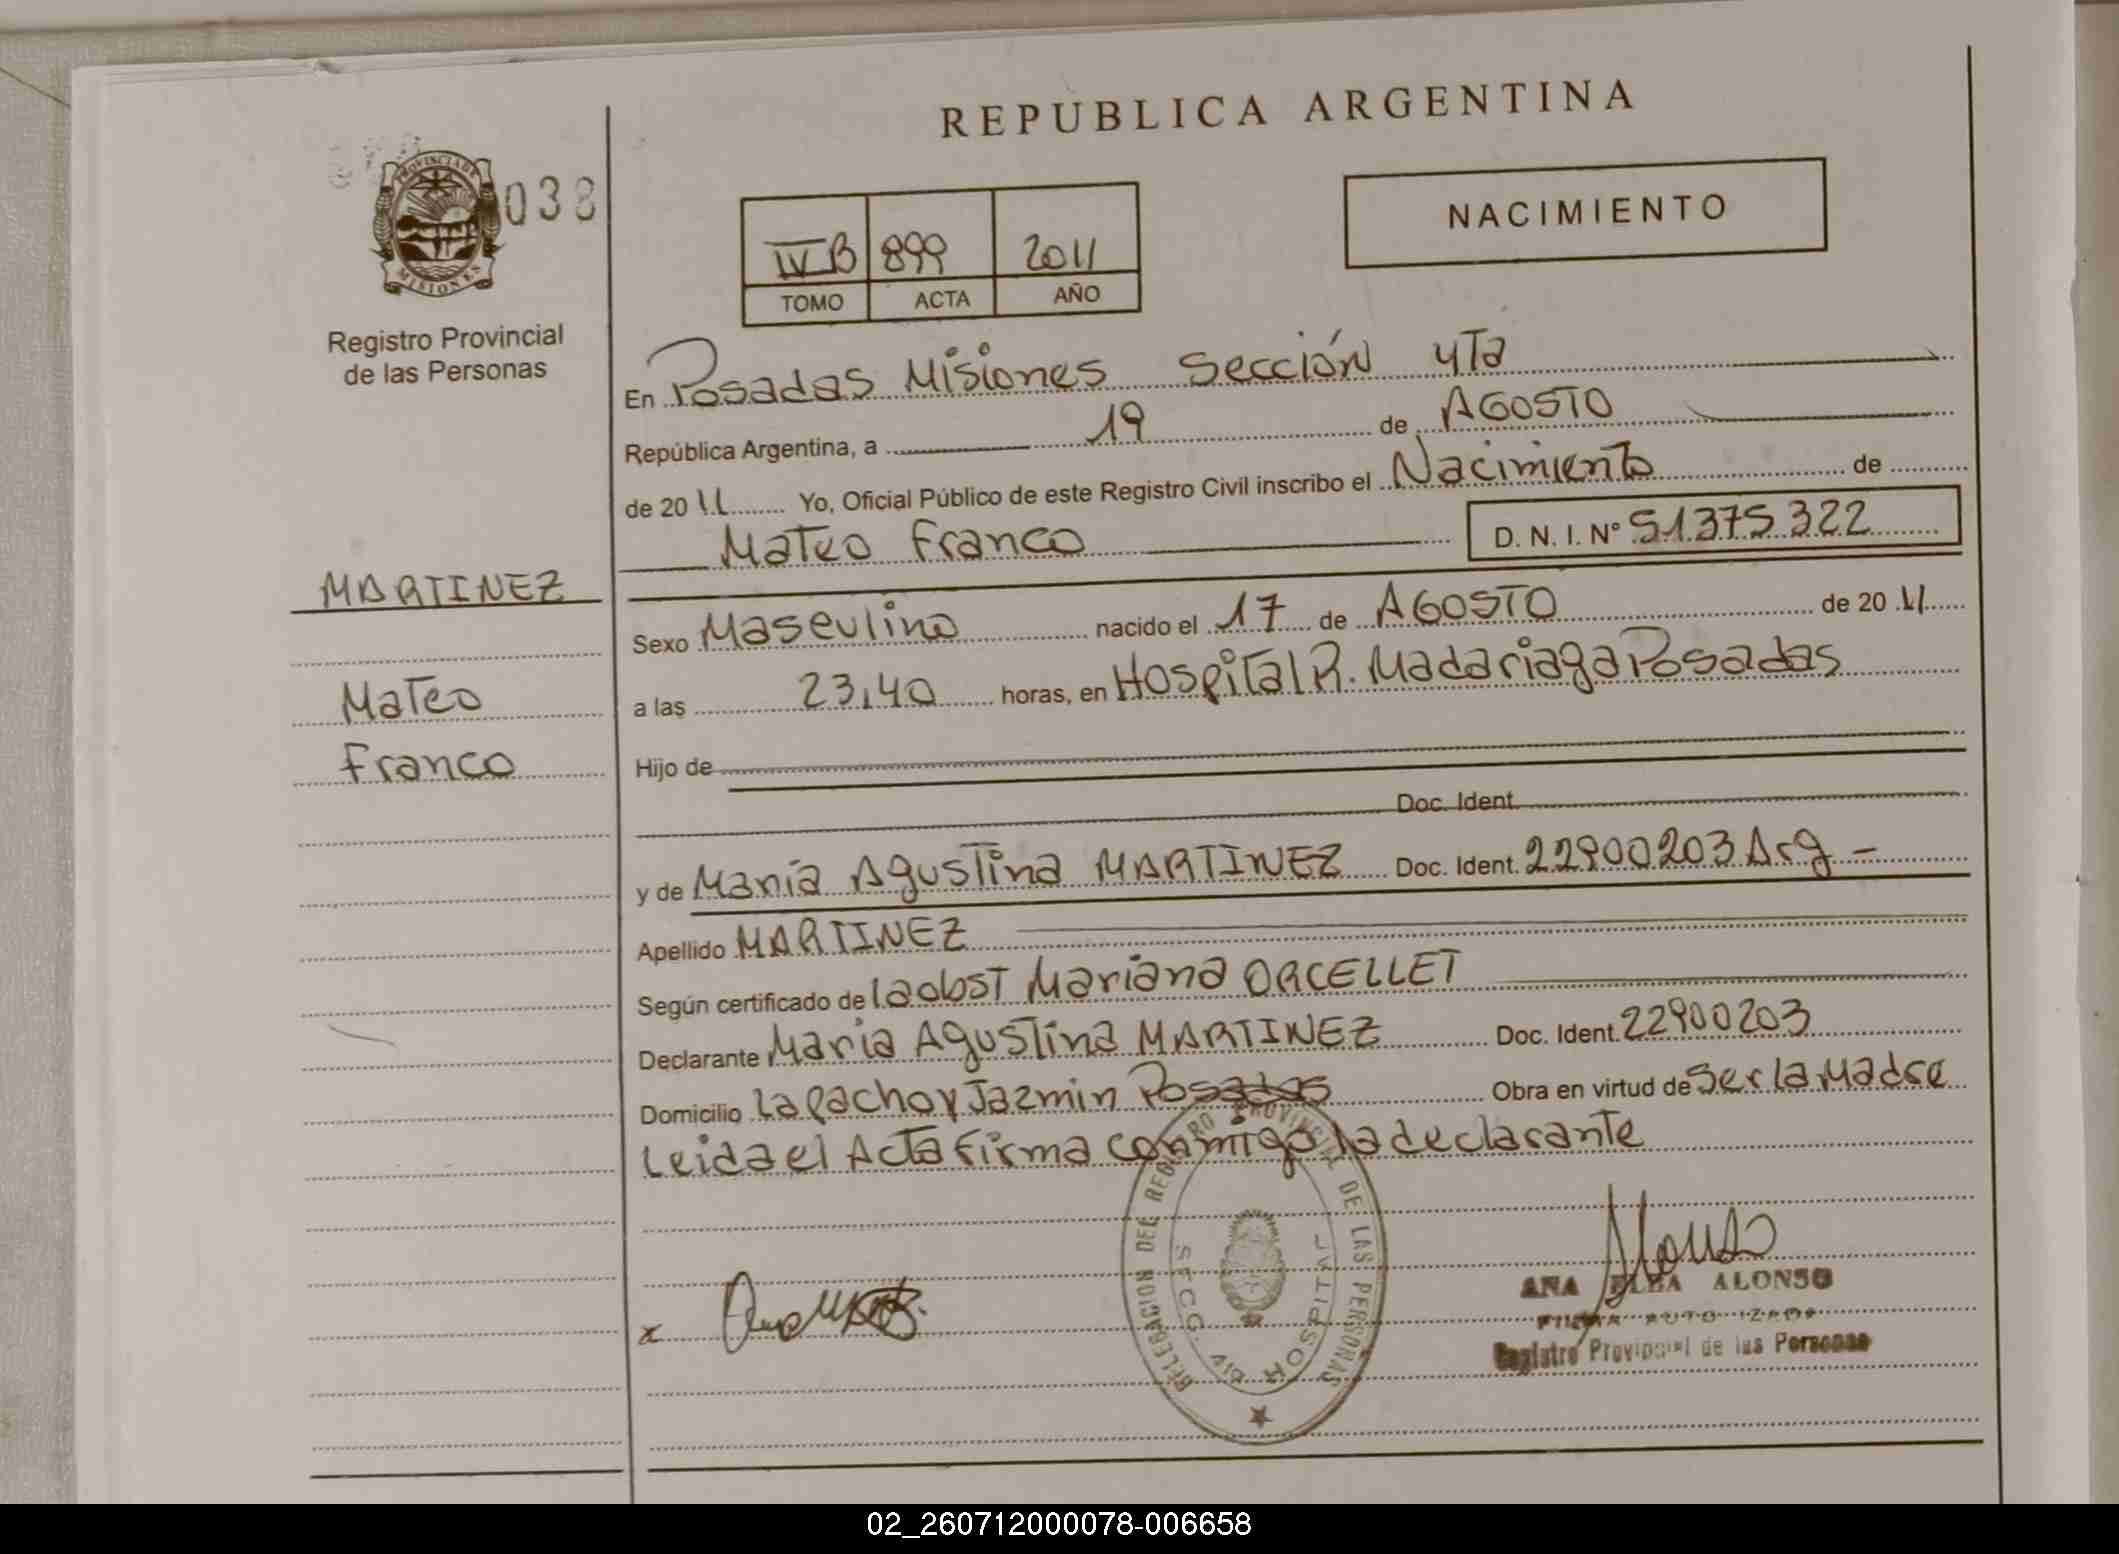 REPUBLICA ARGENTINA
PROVINCIA DE MISIONES
038
Registro Provincial
de las Personas
IV B 899 2011
TOMO ACTA AÑO
NACIMIENTO
En Posadas Misiones Sección 4Ta
República Argentina, a 19 de AGOSTO
de 2011 Yo, Oficial Público de este Registro Civil inscribo el Nacimiento de
Mateo Franco D. N. I. Nº 51375322
MARTINEZ
Mateo
Franco
Sexo Masculino nacido el 17 de AGOSTO de 2011
a las 23,40 horas, en Hospital R. Madariaga Posadas
Hijo de
Doc. Ident.
y de Maria Agustina MARTINEZ Doc. Ident. 22900203 Arg -
Apellido MARTINEZ
Según certificado de la obst Mariana ORCELLET
Declarante Maria Agustina MARTINEZ Doc. Ident. 22900203
Domicilio Lapacho y Jazmin Posadas Obra en virtud de Ser la Madre
Leida el Acta firma conmigo la declarante
DELEGACION DEL REGISTRO PROVINCIAL DE LAS PERSONAS
SECC. HOSPITAL
x
Alonso
ANA ELBA ALONSO
FIRMA AUTORIZADA
Registro Provincial de las Personas
02_260712000078-006658